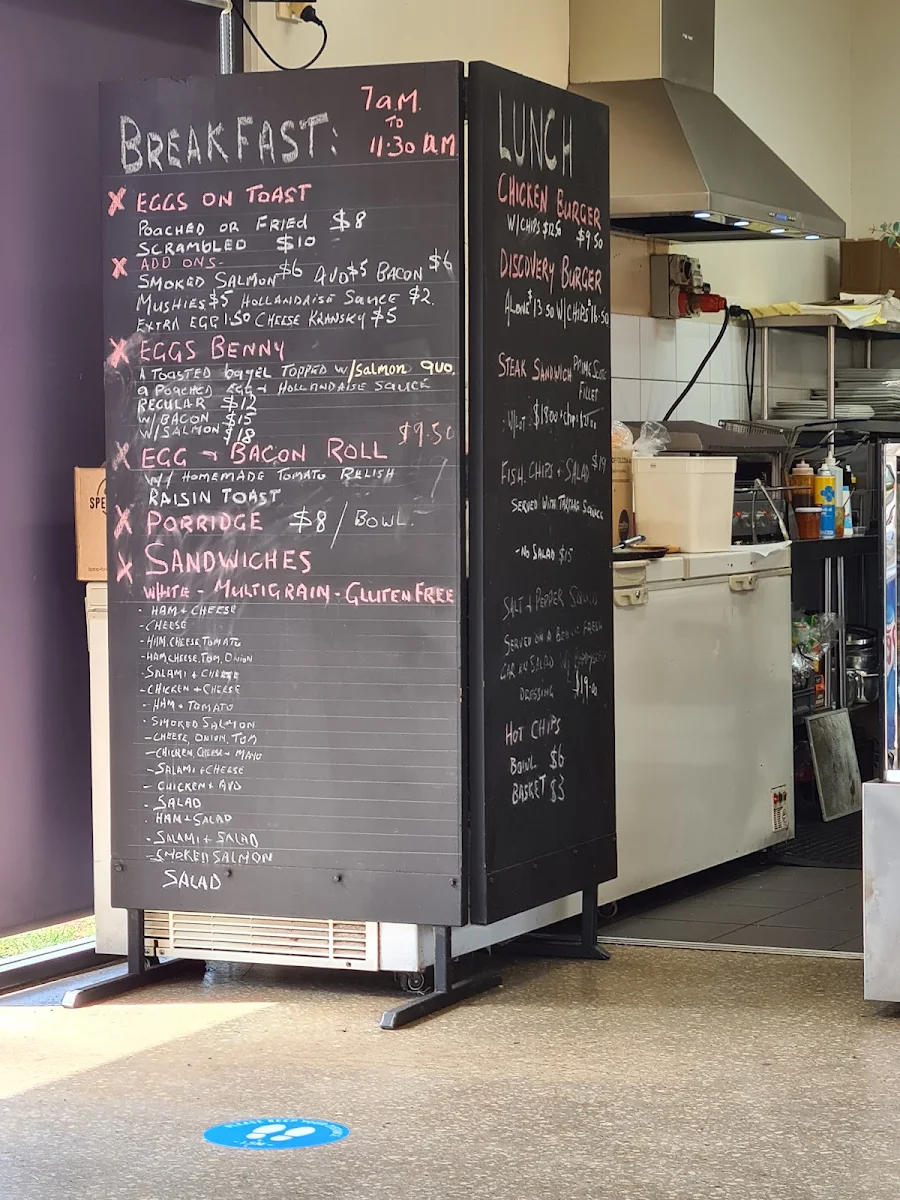 BREAKFAST:
7am
TO
11:30 am
EGGS ON TOAST
POACHED OR FRIED $8
SCRAMBLED $10
ADD ONS-
SMOKED SALMON $6 AVO $5 BACON $6
MUSHIES $5 HOLLANDAISE SAUCE $2
EXTRA EGG 1.50 CHEESE KRANSKY $5
EGGS BENNY
A TOASTED bagel TOPPED W/ Salmon avo,
a POACHED EGG + HOLLANDAISE SAUCE
REGULAR $12
W/ BACON $15
W/ SALMON $18
$9.50
EGG + BACON ROLL
W/ HOMEMADE TOMATO RELISH
RAISIN TOAST
PORRIDGE $8 / BOWL.
SANDWICHES
WHITE - MULTIGRAIN - GLUTEN FREE
- HAM + CHEESE
- CHEESE
- HAM, CHEESE, TOMATO
- HAM CHEESE, TOM, ONION
- SALAMI + CHEESE
- CHICKEN + CHEESE
- HAM + TOMATO
- SMOKED SALMON
- CHEESE, ONION, TOM
- CHICKEN, CHEESE + MAYO
- SALAMI + CHEESE
- CHICKEN + AVO
- SALAD
- HAM + SALAD
- SALAMI + SALAD
- SMOKED SALMON
SALAD
LUNCH
CHICKEN BURGER
W/CHIPS $12.50 $9.50
DISCOVERY BURGER
ALONE $13.50 W/CHIPS $16.50
STEAK SANDWICH PRIME
FILLET
$18.00
FISH, CHIPS + SALAD $19
SERVED WITH TARTARE SAUCE
- NO SALAD $15
SALT + PEPPER
SERVED ON A FRESH
SALAD
DRESSING $19.00
HOT CHIPS
BOWL $6
BASKET $3
SPE